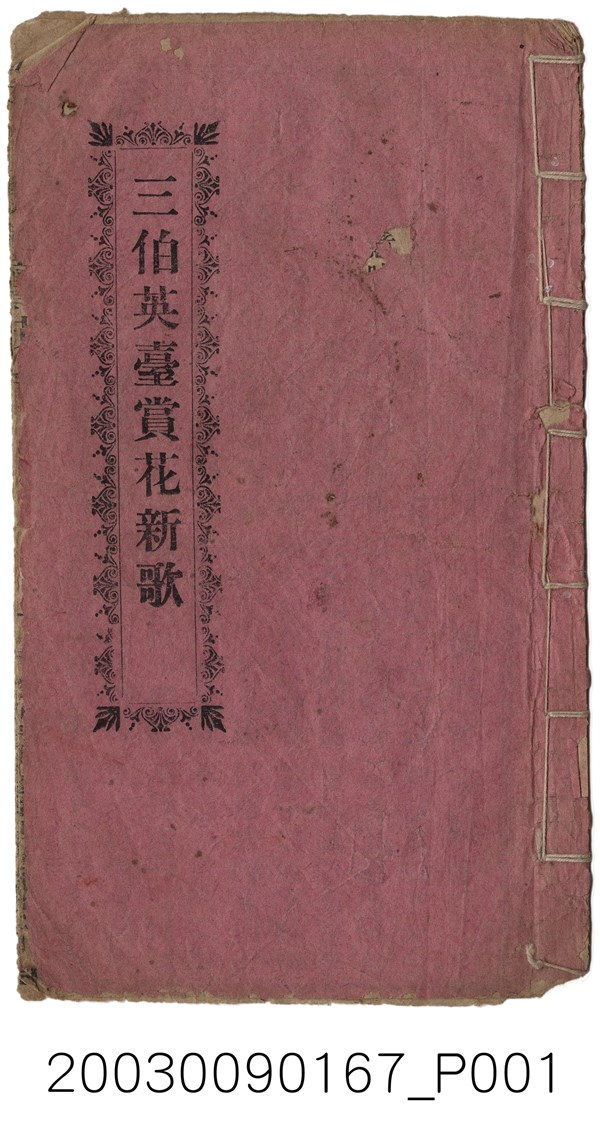 三伯英臺賞花新歌
20030090167_P001